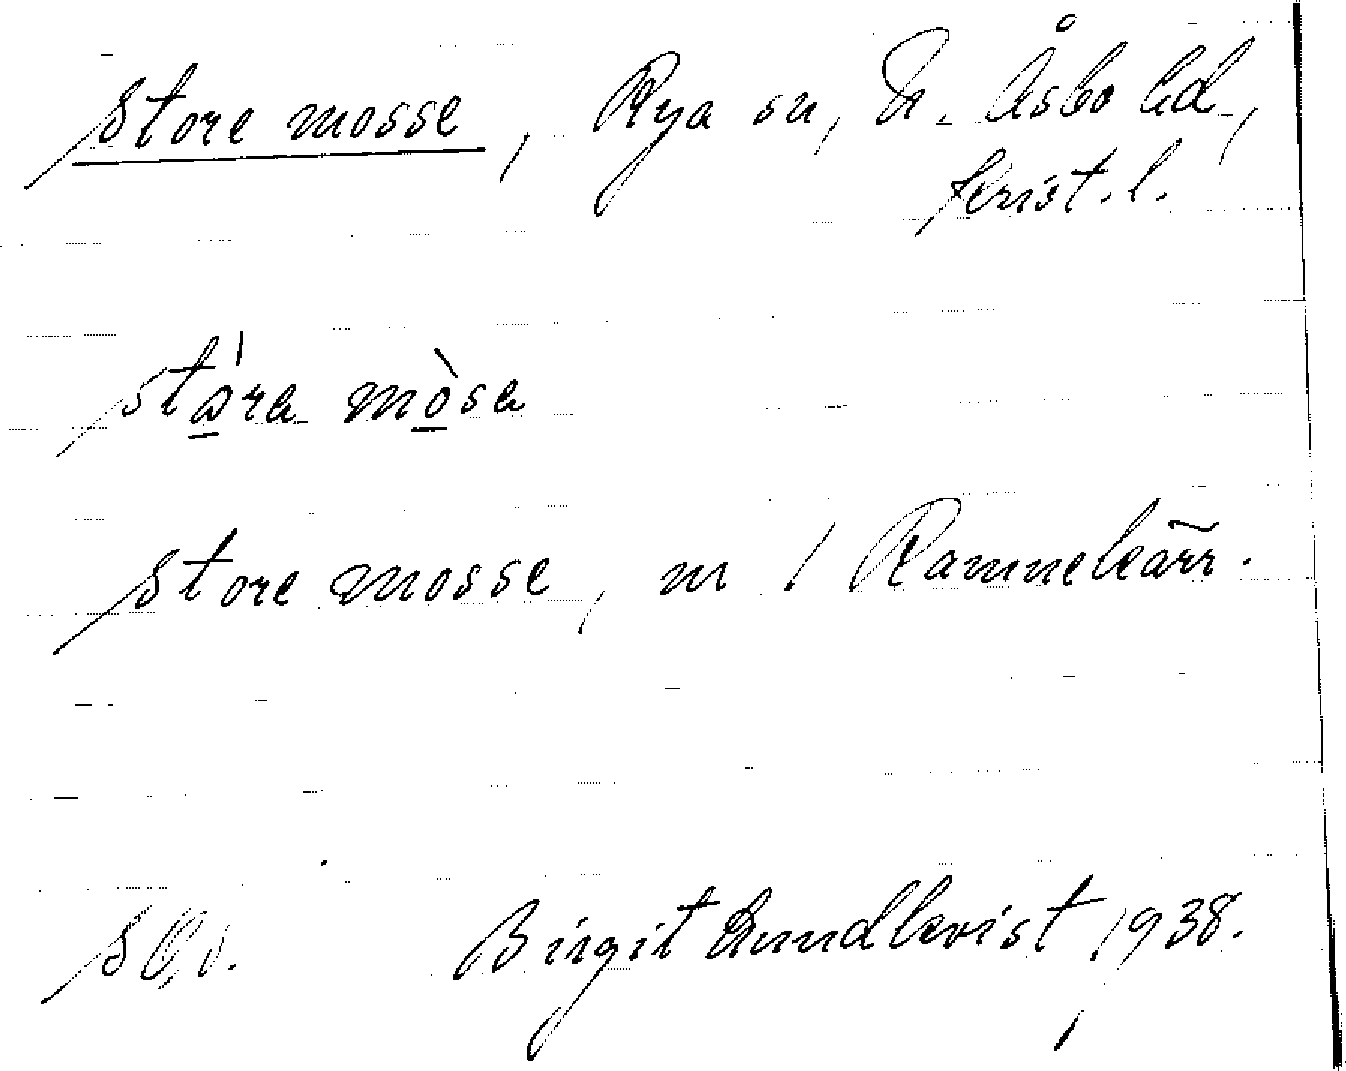 Store mosse, Rya sn, N. Åsbo hd.,
krist. l.
stå̀ra mòsa
Store mosse, m / Ramnekärr.
Birgit Lundkvist, 1938.